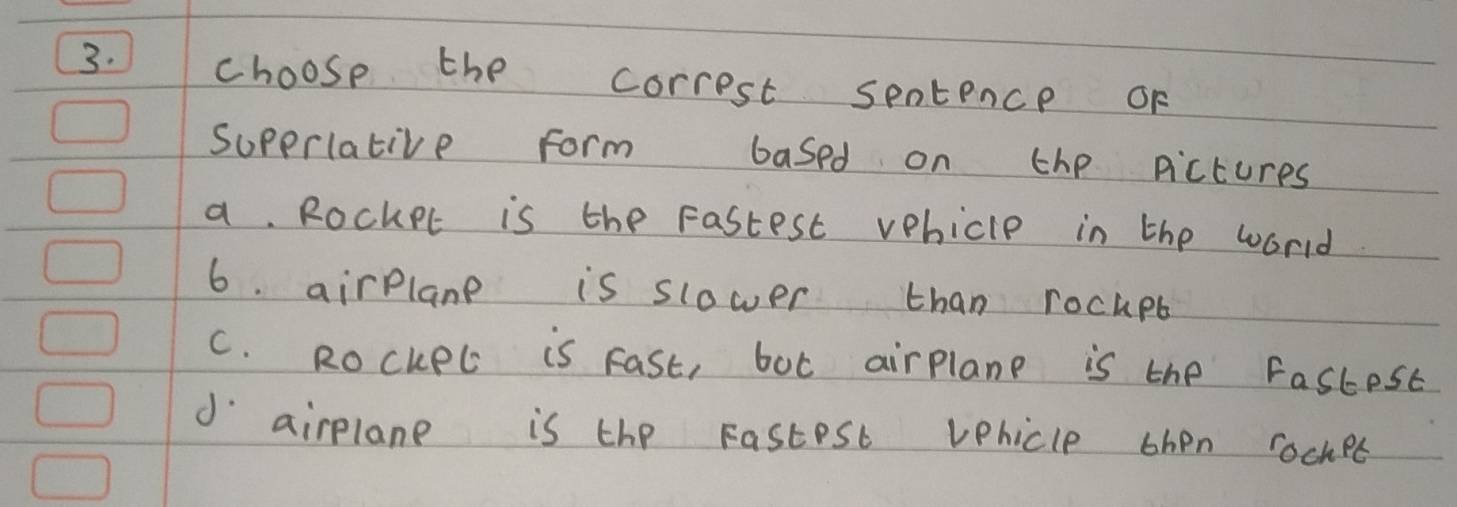 3. Choose the correst sentence of
superlative form based on the pictures
a. Rocket is the fastest vehicle in the world
b. airplane is slower than rocket
c. Rocket is fast, but airplane is the fastest
d. airplane is the fastest vehicle then rocket